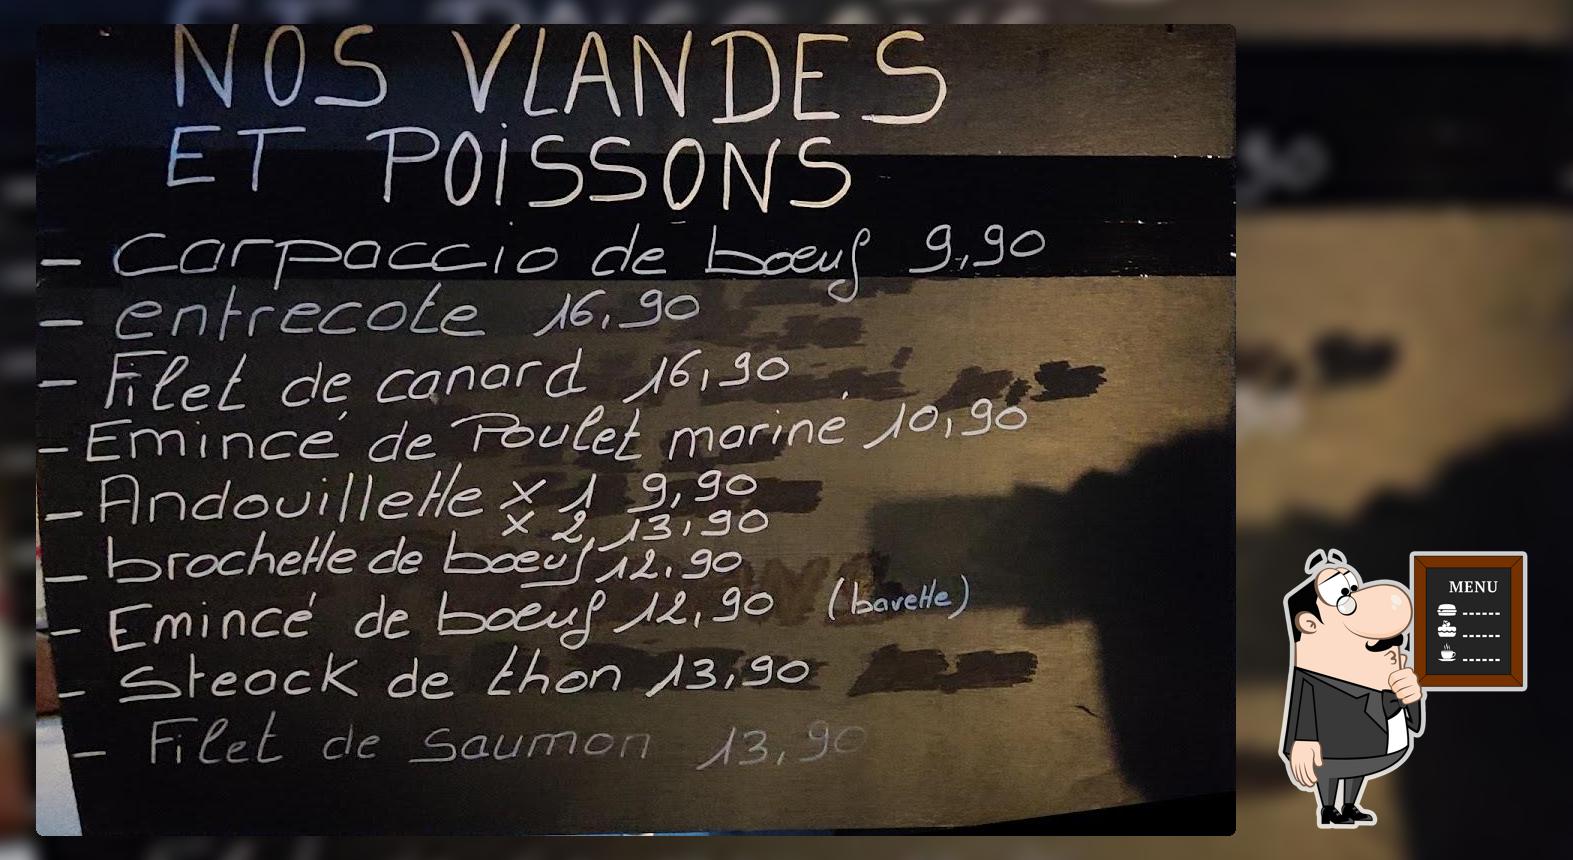 NOS VIANDES
ET POISSONS
- Carpaccio de bœuf 9,90
- entrecote 16,90
- Filet de canard 16,90
- Emincé de Poulet mariné 10,90
- Andouillette x 1 9,90
x 2, 13,90
- brochette de bœuf 12,90
- Emincé de bœuf 12,90 (bavette)
- Steack de thon 13,90
- Filet de Saumon 13,90
MENU